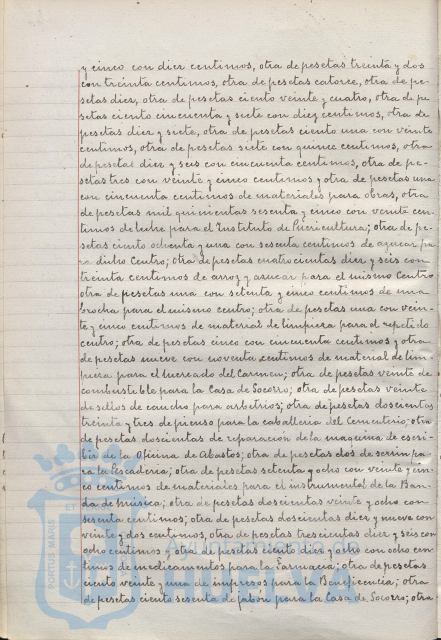 y cinco con diez centimos, otra de pesetas treinta y dos
con treinta centimos, otra de pesetas catorce, otra de pe-
setas diez, otra de pesetas ciento veinte y cuatro, otra de pe-
setas ciento cincuenta y siete con diez centimos, otra de
pesetas diez y siete, otra de pesetas ciento una con veinte
centimos, otra de pesetas siete con quince centimos, otra
de pesetas diez y seis con cincuenta centimos, otra de pe-
setas tres con veinte y cinco centimos y otra de pesetas una
con cincuenta centimos de materiales para obras, otra
de pesetas mil quinientas sesenta y cinco con veinte cen-
timos de leche para el Instituto de Puericultura; otra de pe-
setas ciento ochenta y una con sesenta centimos de azucar pa-
ra dicho Centro; otra de pesetas cuatrocientas diez y seis con
treinta centimos de arroz y azucar para el mismo Centro
otra de pesetas una con setenta y cinco centimos de una
brocha para el mismo centro; otra de pesetas una con vein-
te y cinco centimos de material de limpieza para el repetido
centro; otra de pesetas cinco con cincuenta centimos y otra
de pesetas nueve con noventa centimos de material de lim-
pieza para el Mercado del Carmen; otra de pesetas veinte de
combustible para la Casa de Socorro; otra de pesetas veinte
de sellos de caucho para arbitrios; otra de pesetas doscientas
treinta y tres de pienso para la caballeria del Cementerio; otra
de pesetas doscientas de reparación de la maquina de escri-
bir de la Oficina de Abastos; otra de pesetas dos de serrin pa-
ra la Pescaderia; otra de pesetas setenta y ocho con veinte y cin-
co centimos de materiales para el instrumental de la Ban-
da de Música; otra de pesetas doscientas veinte y ocho con
sesenta centimos; otra de pesetas doscientas diez y nueve con
veinte y dos centimos, otra de pesetas trescientas diez y seis con
ocho centimos y otra de pesetas ciento diez y ocho con ocho cen-
timos de medicamentos para la Farmacia; otra de pesetas
ciento veinte y una de impresos para la Beneficencia; otra
de pesetas ciento sesenta de jabón para la Casa de Socorro; otra
PORTUS MAGIS